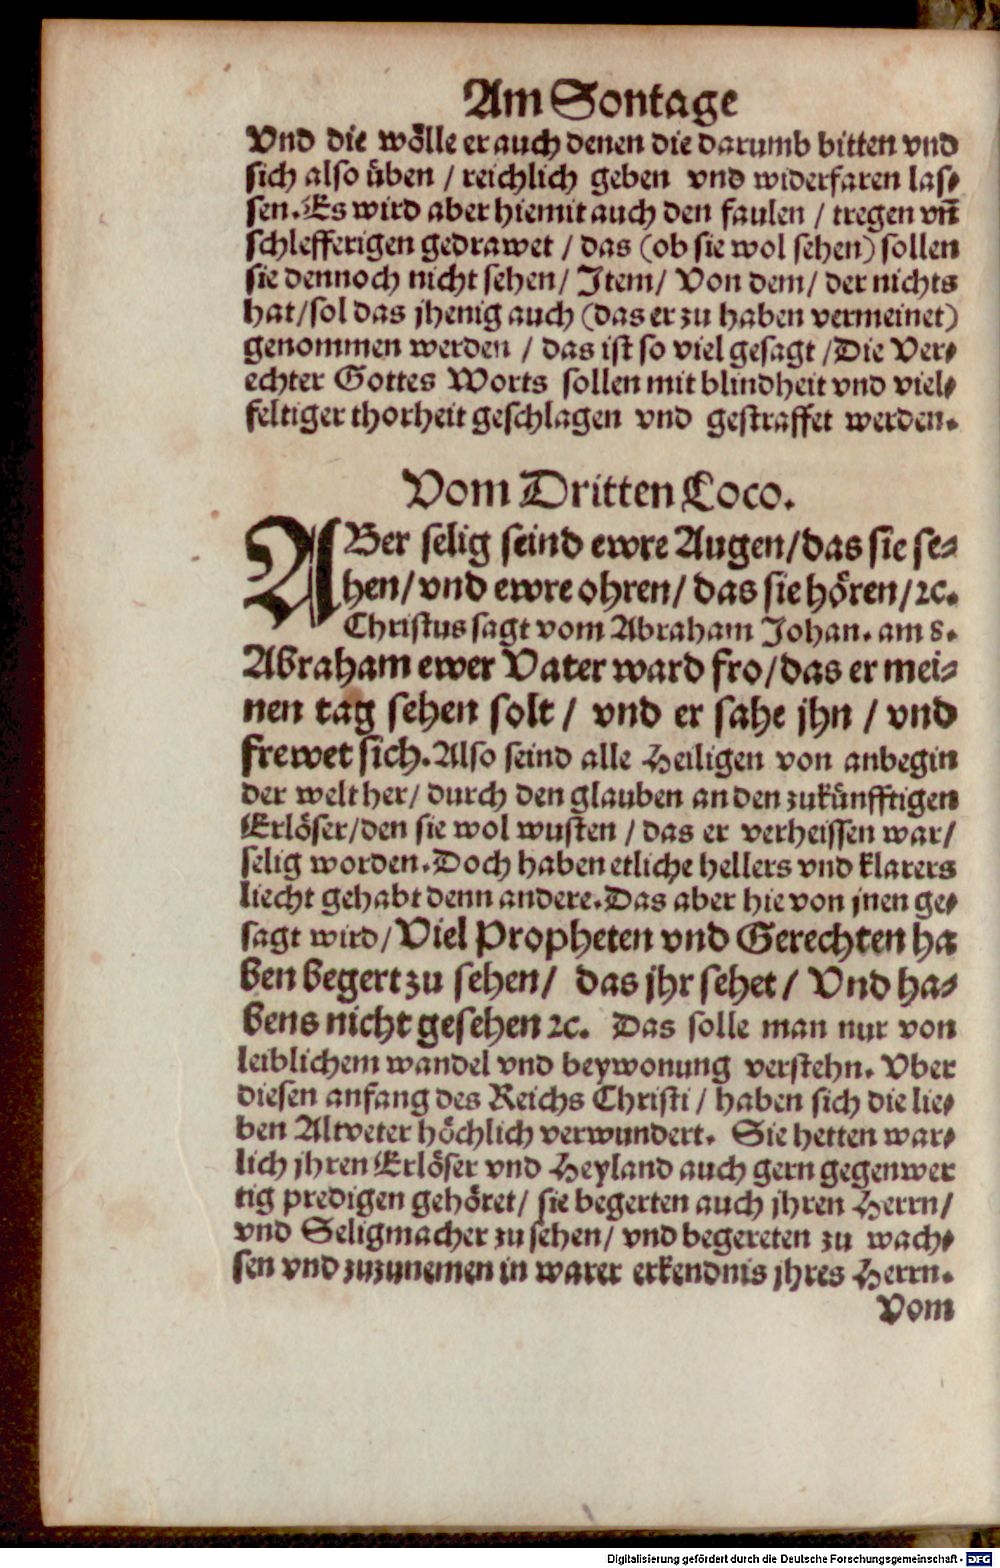 Am Sontage
Vnd die wölle er auch denen die darumb bitten vnd
sich also üben / reichlich geben vnd widerfaren las⸗
sen. Es wird aber hiemit auch den faulen / tregen vñ
schlefferigen gedrawet / das (ob sie wol sehen) sollen
sie dennoch nicht sehen / Item / Von dem / der nichts
hat / sol das jhenig auch (das er zu haben vermeinet)
genommen werden / das ist so viel gesagt / Die Ver⸗
echter Gottes Worts sollen mit blindheit vnd viel⸗
feltiger thorheit geschlagen vnd gestraffet werden.
Vom Dritten Loco.
ABer selig seind ewre Augen / das sie se⸗
hen / vnd ewre ohren / das sie hören / ꝛc.
Christus sagt vom Abraham Johan. am 8.
Abraham ewer Vater ward fro / das er mei⸗
nen tag sehen solt / vnd er sahe jhn / vnd
frewet sich. Also seind alle Heiligen von anbegin
der welt her / durch den glauben an den zukünfftigen
Erlöser / den sie wol wusten / das er verheissen war /
selig worden. Doch haben etliche hellers vnd klarers
liecht gehabt denn andere. Das aber hie von jnen ge⸗
sagt wird / Viel Propheten vnd Gerechten ha
ben begert zu sehen / das jhr sehet / Vnd ha⸗
bens nicht gesehen ꝛc. Das solle man nur von
leiblichem wandel vnd beywonung verstehn. Vber
diesen anfang des Reichs Christi / haben sich die lie⸗
ben Altveter höchlich verwundert. Sie hetten war⸗
lich jhren Erlöser vnd Heyland auch gern gegenwer
tig predigen gehöret / sie begerten auch jhren Herrn /
vnd Seligmacher zu sehen / vnd begereten zu wach⸗
sen vnd zuzunemen in warer erkendnis jhres Herrn.
Vom
Digitalisierung gefördert durch die Deutsche Forschungsgemeinschaft - DFG